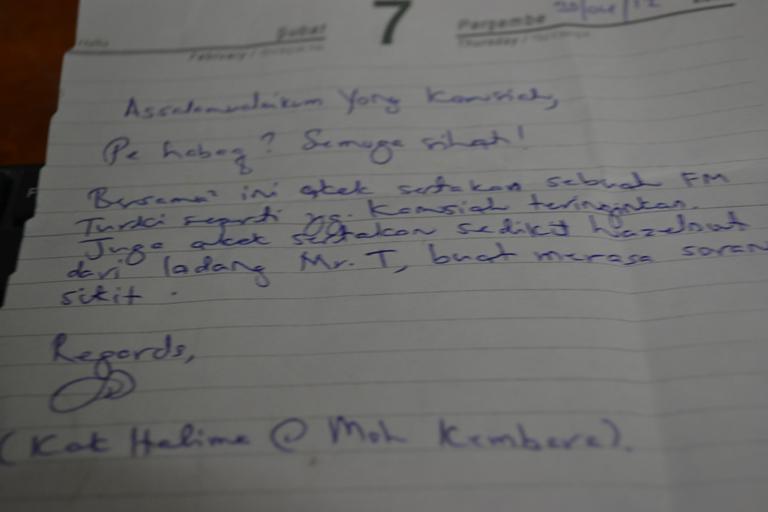 Şubat 7 Perşembe
February / Thursday /
Assalamualaikum Yong Kamsiah,
Pe habaq? Semoga sihat!
Bersama ini akak sertakan sebuah FM
Turki seperti yg. Kamsiah teringinkan.
Juga akak sertakan sedikit hazelnut
dari ladang Mr. T, buat merasa soran
sikit.
Regards,
(Kak Halima @ Moh Kembara).